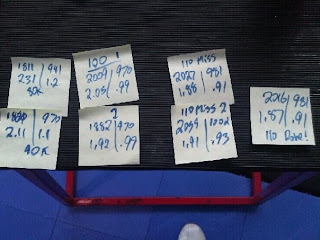 1811 | 941
2.31 | 1.2
80K
1880 | 970
2.11 | 1.1
90K
100 1
2009 | 970
2.05 | .99
2
1882 | 970
1.92 | .99
110 Miss
2027 | 981
1.88 | .91
110 Miss 2
2059 | 1002
1.91 | .93
2016 | 981
1.87 | .91
110 Done!